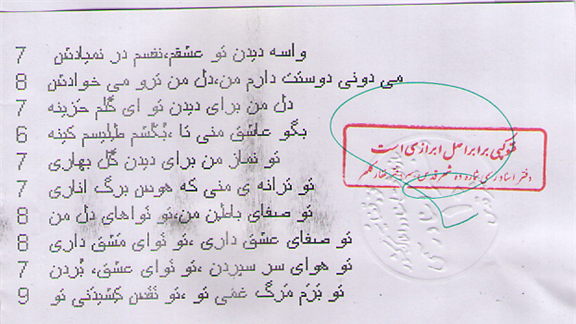 7 واسه دیدن تو عشقم،نفسم در نمیادش
8 می دونی دوستت دارم من،دل من ترو می خوادش
7 دل من برای دیدن تو ای گلم حزینه
6 بگو عاشق منی تا ،بُکُشم طلیسم کینه
7 تو نماز من برای دیدن گل بهاری
7 تو ترانه ی منی که هوس برگ اناری
8 تو صفای باطن من،تو نواهای دل من
8 تو صفای عشق داری ،تو نوای مشق داری
7 تو هوای سر سپردن ،تو نوای عشق، بُردن
9 تو بَزم مَرگ غمی تو ،تو نَفَس کشیدنی تو
فتوکپی برابر اصل ابرازی است
دفتر اسناد رسمی